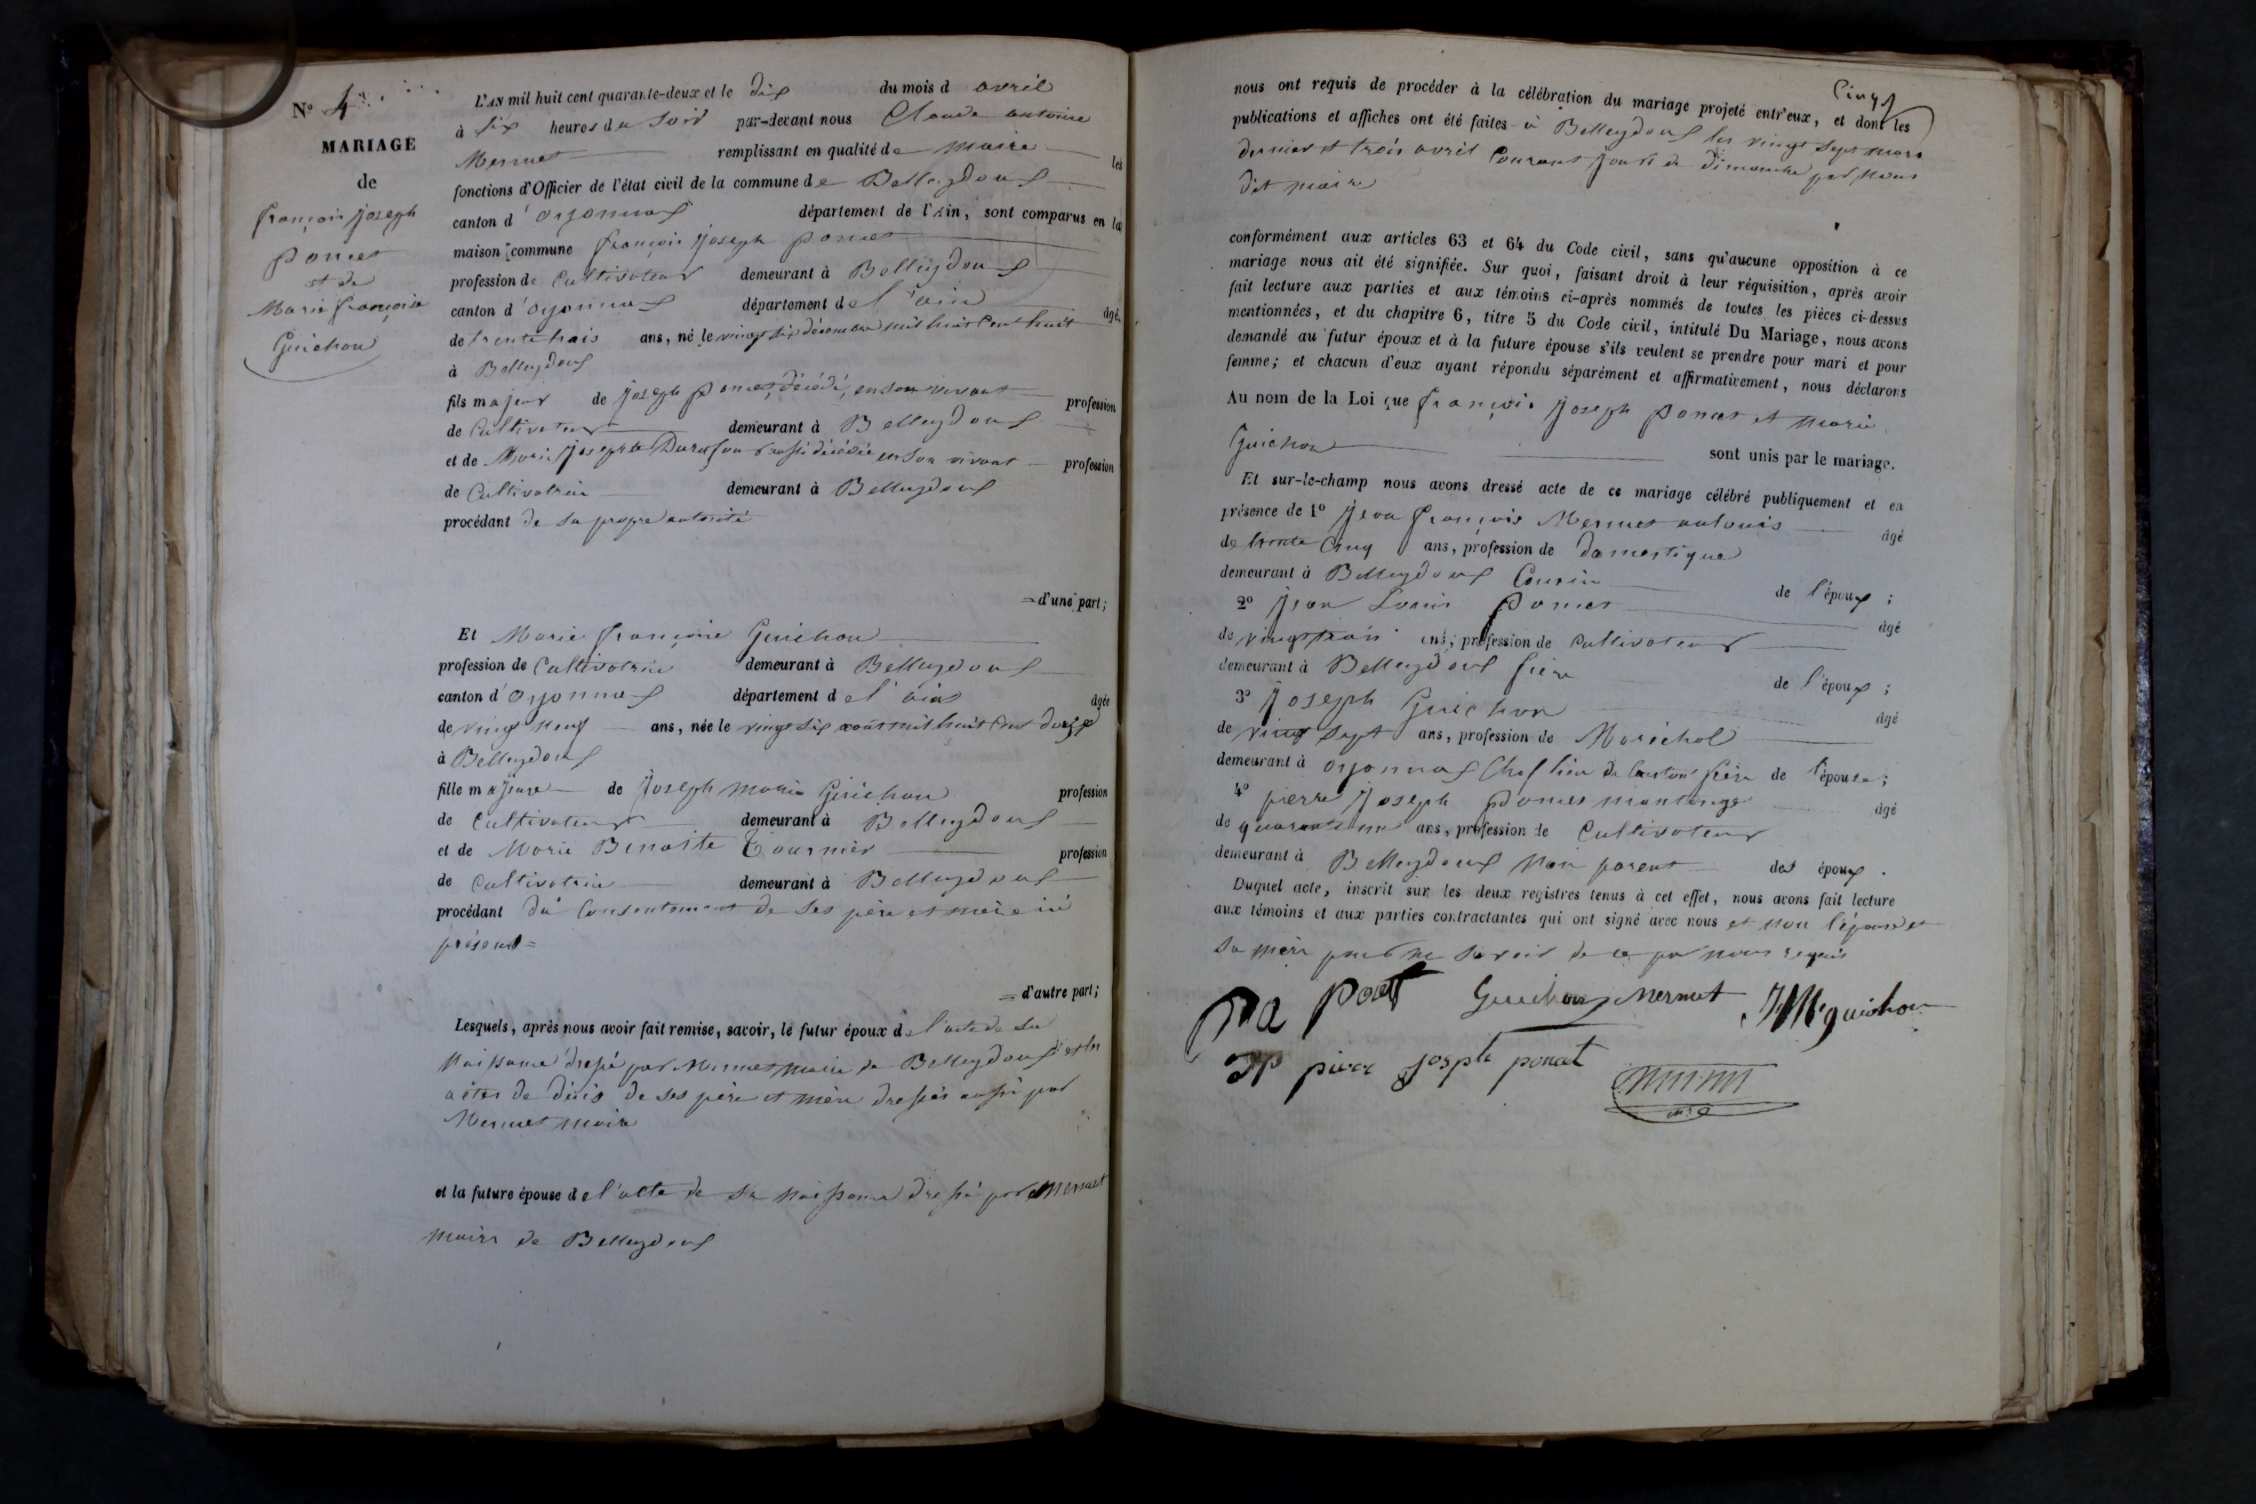 N° 4
MARIAGE
de
françois joseph
poncet
et de
Marie françoise
Guichon
L'AN mil huit cent quarante-deux et le dix du mois d avril
à six heures du Soir par-devant nous Claude antoine
Mermet remplissant en qualité de maire les
fonctions d'Officier de l'état civil de la commune de Belleydoux
canton d'oyonnax département de l'Ain, sont comparus en la
maison commune françois joseph poncet
profession de Cultivateur demeurant à Belleydoux
canton d'oyonnax département de l'ain âgé
de trente trois ans, né le vingt six décembre mil huit Cent huit
à Belleydoux
fils majeur de joseph poncet, décédé, en son vivant profession
de Cultivateur demeurant à Belleydoux
et de Marie josephte aussi décédée en son vivant profession
de Cultivatrice demeurant à Belleydoux
procédant de sa propre autorité
d'une part;
Et Marie françoise Guichon
profession de Cultivatrice demeurant à Belleydoux
canton d'oyonnax département de l'ain âgée
de vingt neuf ans, née le vingt six août mil huit Cent douze
à Belleydoux
fille majeure de joseph marie Guichon profession
de Cultivateur demeurant à Belleydoux
et de Marie Benoite Tournier profession
de Cultivatrice demeurant à Belleydoux
procédant du Consentement de ses père et mère ici
présents =
= d'autre part;
Lesquels, après nous avoir fait remise, savoir, le futur époux de l'acte de sa
naissance dressé par Mermet maire de Belleydoux et les
actes de décès de ses père et mère dressés aussi par
Mermet maire
et la future épouse de l'acte de sa naissance dressé par Mermet
maire de Belleydoux
Cinq
nous ont requis de procéder à la célébration du mariage projeté entr'eux, et dont les
publications et affiches ont été faites à Belleydoux les vingt sept mars
dernier et trois avril Courant jours de dimanche par nous
dit maire
conformément aux articles 63 et 64 du Code civil, sans qu'aucune opposition à ce
mariage nous ait été signifiée. Sur quoi, faisant droit à leur réquisition, après avoir
fait lecture aux parties et aux témoins ci-après nommés de toutes les pièces ci-dessus
mentionnées, et du chapitre 6, titre 5 du Code civil, intitulé Du Mariage, nous avons
demandé au futur époux et à la future épouse s'ils veulent se prendre pour mari et pour
femme; et chacun d'eux ayant répondu séparément et affirmativement, nous déclarons
Au nom de la Loi que françois joseph poncet et marie
Guichon sont unis par le mariage.
Et sur-le-champ nous avons dressé acte de ce mariage célébré publiquement et en
présence de 1° jean françois Mermet âgé
de trente Cinq ans, profession de domestique
demeurant à Belleydoux Cousin de l'époux;
2° jean Louis poncet âgé
de vingt trois ans, profession de Cultivateur
demeurant à Belleydoux frère de l'époux;
3° joseph Guichon âgé
de vingt sept ans, profession de Maréchal
demeurant à oyonnax Chef lieu de Canton frère de l'épouse;
4° pierre joseph poncet âgé
de quarante un ans, profession de Cultivateur
demeurant à Belleydoux non parent des époux.
Duquel acte, inscrit sur les deux registres tenus à cet effet, nous avons fait lecture
aux témoins et aux parties contractantes qui ont signé avec nous et non l'épouse et
sa mère pour ne savoir de ce par nous requis
Guichon Mermet J M guichon
pierre josph poncet